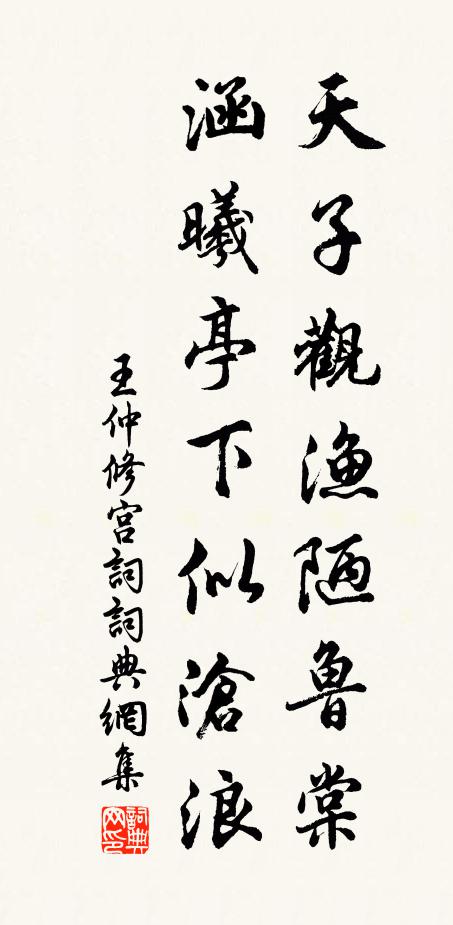 天子觀漁陋魯棠
涵曦亭下似滄浪
王仲修宮詞詞典網集
詞典网印